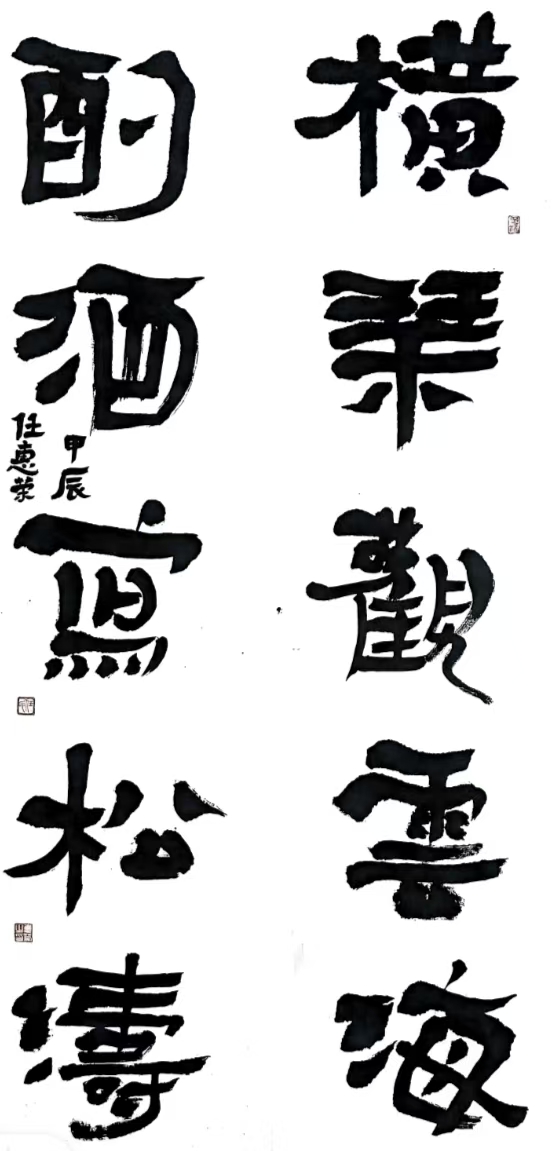 橫琴觀雲海
酌酒寫松濤
甲辰
任惠荣